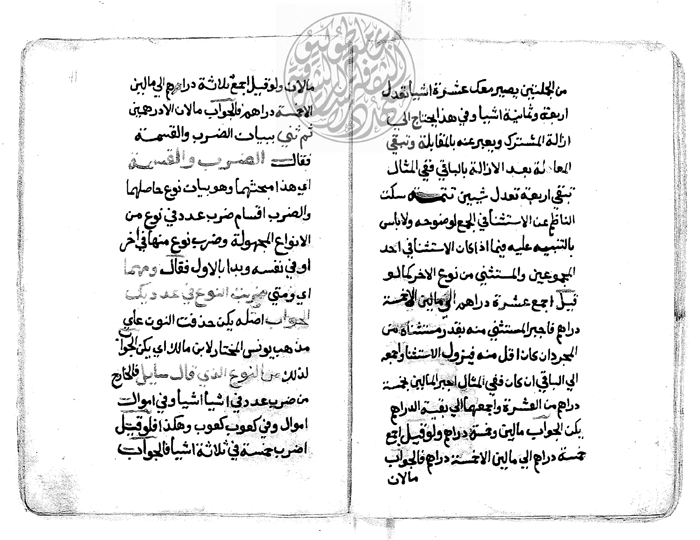 من الجملتين يصير معك عشرة اشيا تعدل
اربعة وثمانية اشيا وفي هذا يحتاج الى
ازالة المشترك ويعبر عنه بالمقابلة وتبقي
المعادلة بعد الازالة بالباقي ففي المثال
تبقي اربعة تعدل شيين تتمـة سكت
الناظم عن الاستثنا في الجمع لوضوحه ولا باس
بالتنبيه عليه فيما اذا كان الاستثنا في احد
المجموعين والمستثني من نوع الاخر كما لو
قيل اجمع عشرة دراهم الي مالين الا خمسة
دراهم فاجبر المستثني منه بقدر مستثناه من
المجرد ان كان اقل منه فيزول الاستثنا واجمعه
الي الباقي ان كان ففي المثال اجبر المالين بخمسة
دراهم من العشرة واجمعها الي بقية الدراهم
يكن الجواب مالين وخمسة دراهم ولو قيل اجمع
خمسة دراهم الي مالين الا خمسة دراهم فالجواب
مالان
مالان ولو قيل اجمع ثلاثة دراهم الي مالين
الا خمسة دراهم فالجواب مالان الا درهمين
ثم ثني ببيان الضرب والقسمة
فقال الضرب والقسمة
اي هذا مبحثهما وهو بيان نوع حاصلهما
والضرب اقسام ضرب عدد في نوع من
الانواع المجهولة وضرب نوع منها في اخر
او في نفسه وبدا بالاول فقال ومهما
اي ومتي ضربت النوع في عدد يكن
الجواب اصله يكن حذفت النون علي
مذهب يونس المختار لابن مالك اي يكن الجواب
لذلك من النوع الذي قال سايل فالخارج
من ضرب عدد في اشيا اشيا وفي اموال
اموال وفي كعوب كعوب وهكذا فلو قيل
اضرب خمسة في ثلاثة اشيا فالجواب